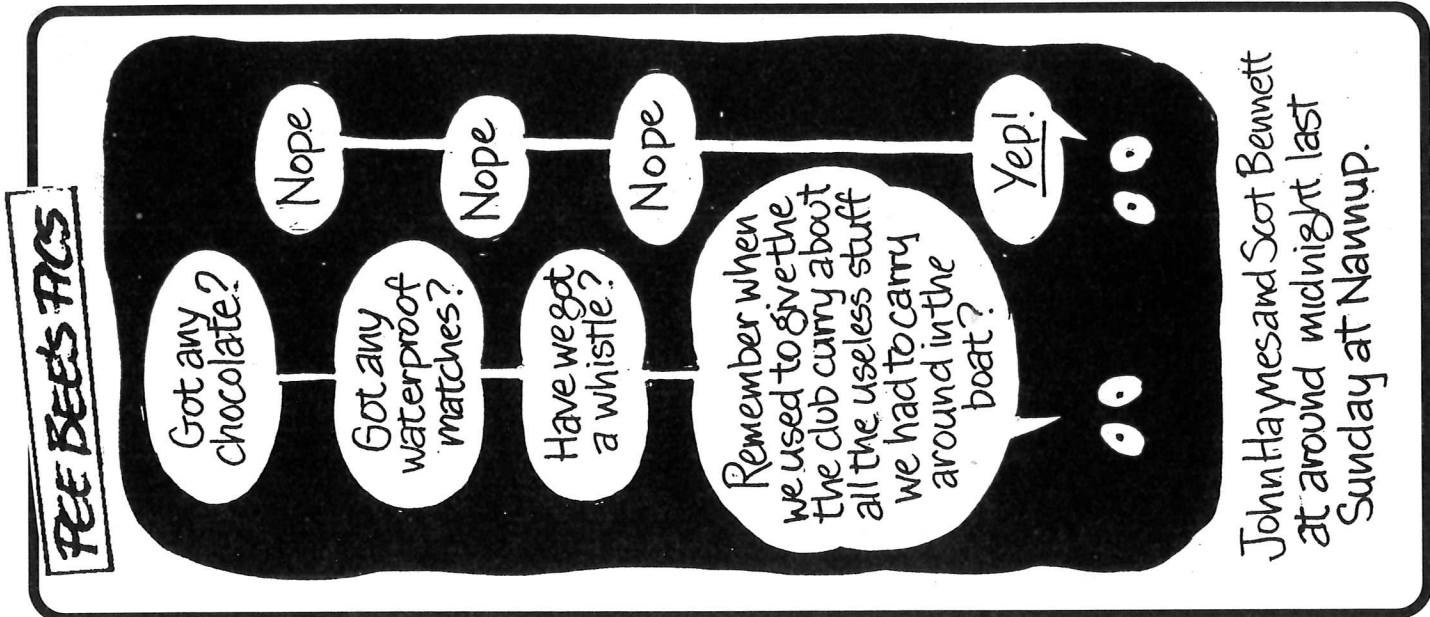 PEE BEE'S PICS
Got any
chocolate?
Nope
Got any
waterproof
matches?
Nope
Have we got
a whistle?
Nope
Remember when
we used to give the
the club curry about
all the useless stuff
we had to carry
around in the
boat?
Yep!
John Haymes and Scot Bennett
at around midnight last
Sunday at Nannup.